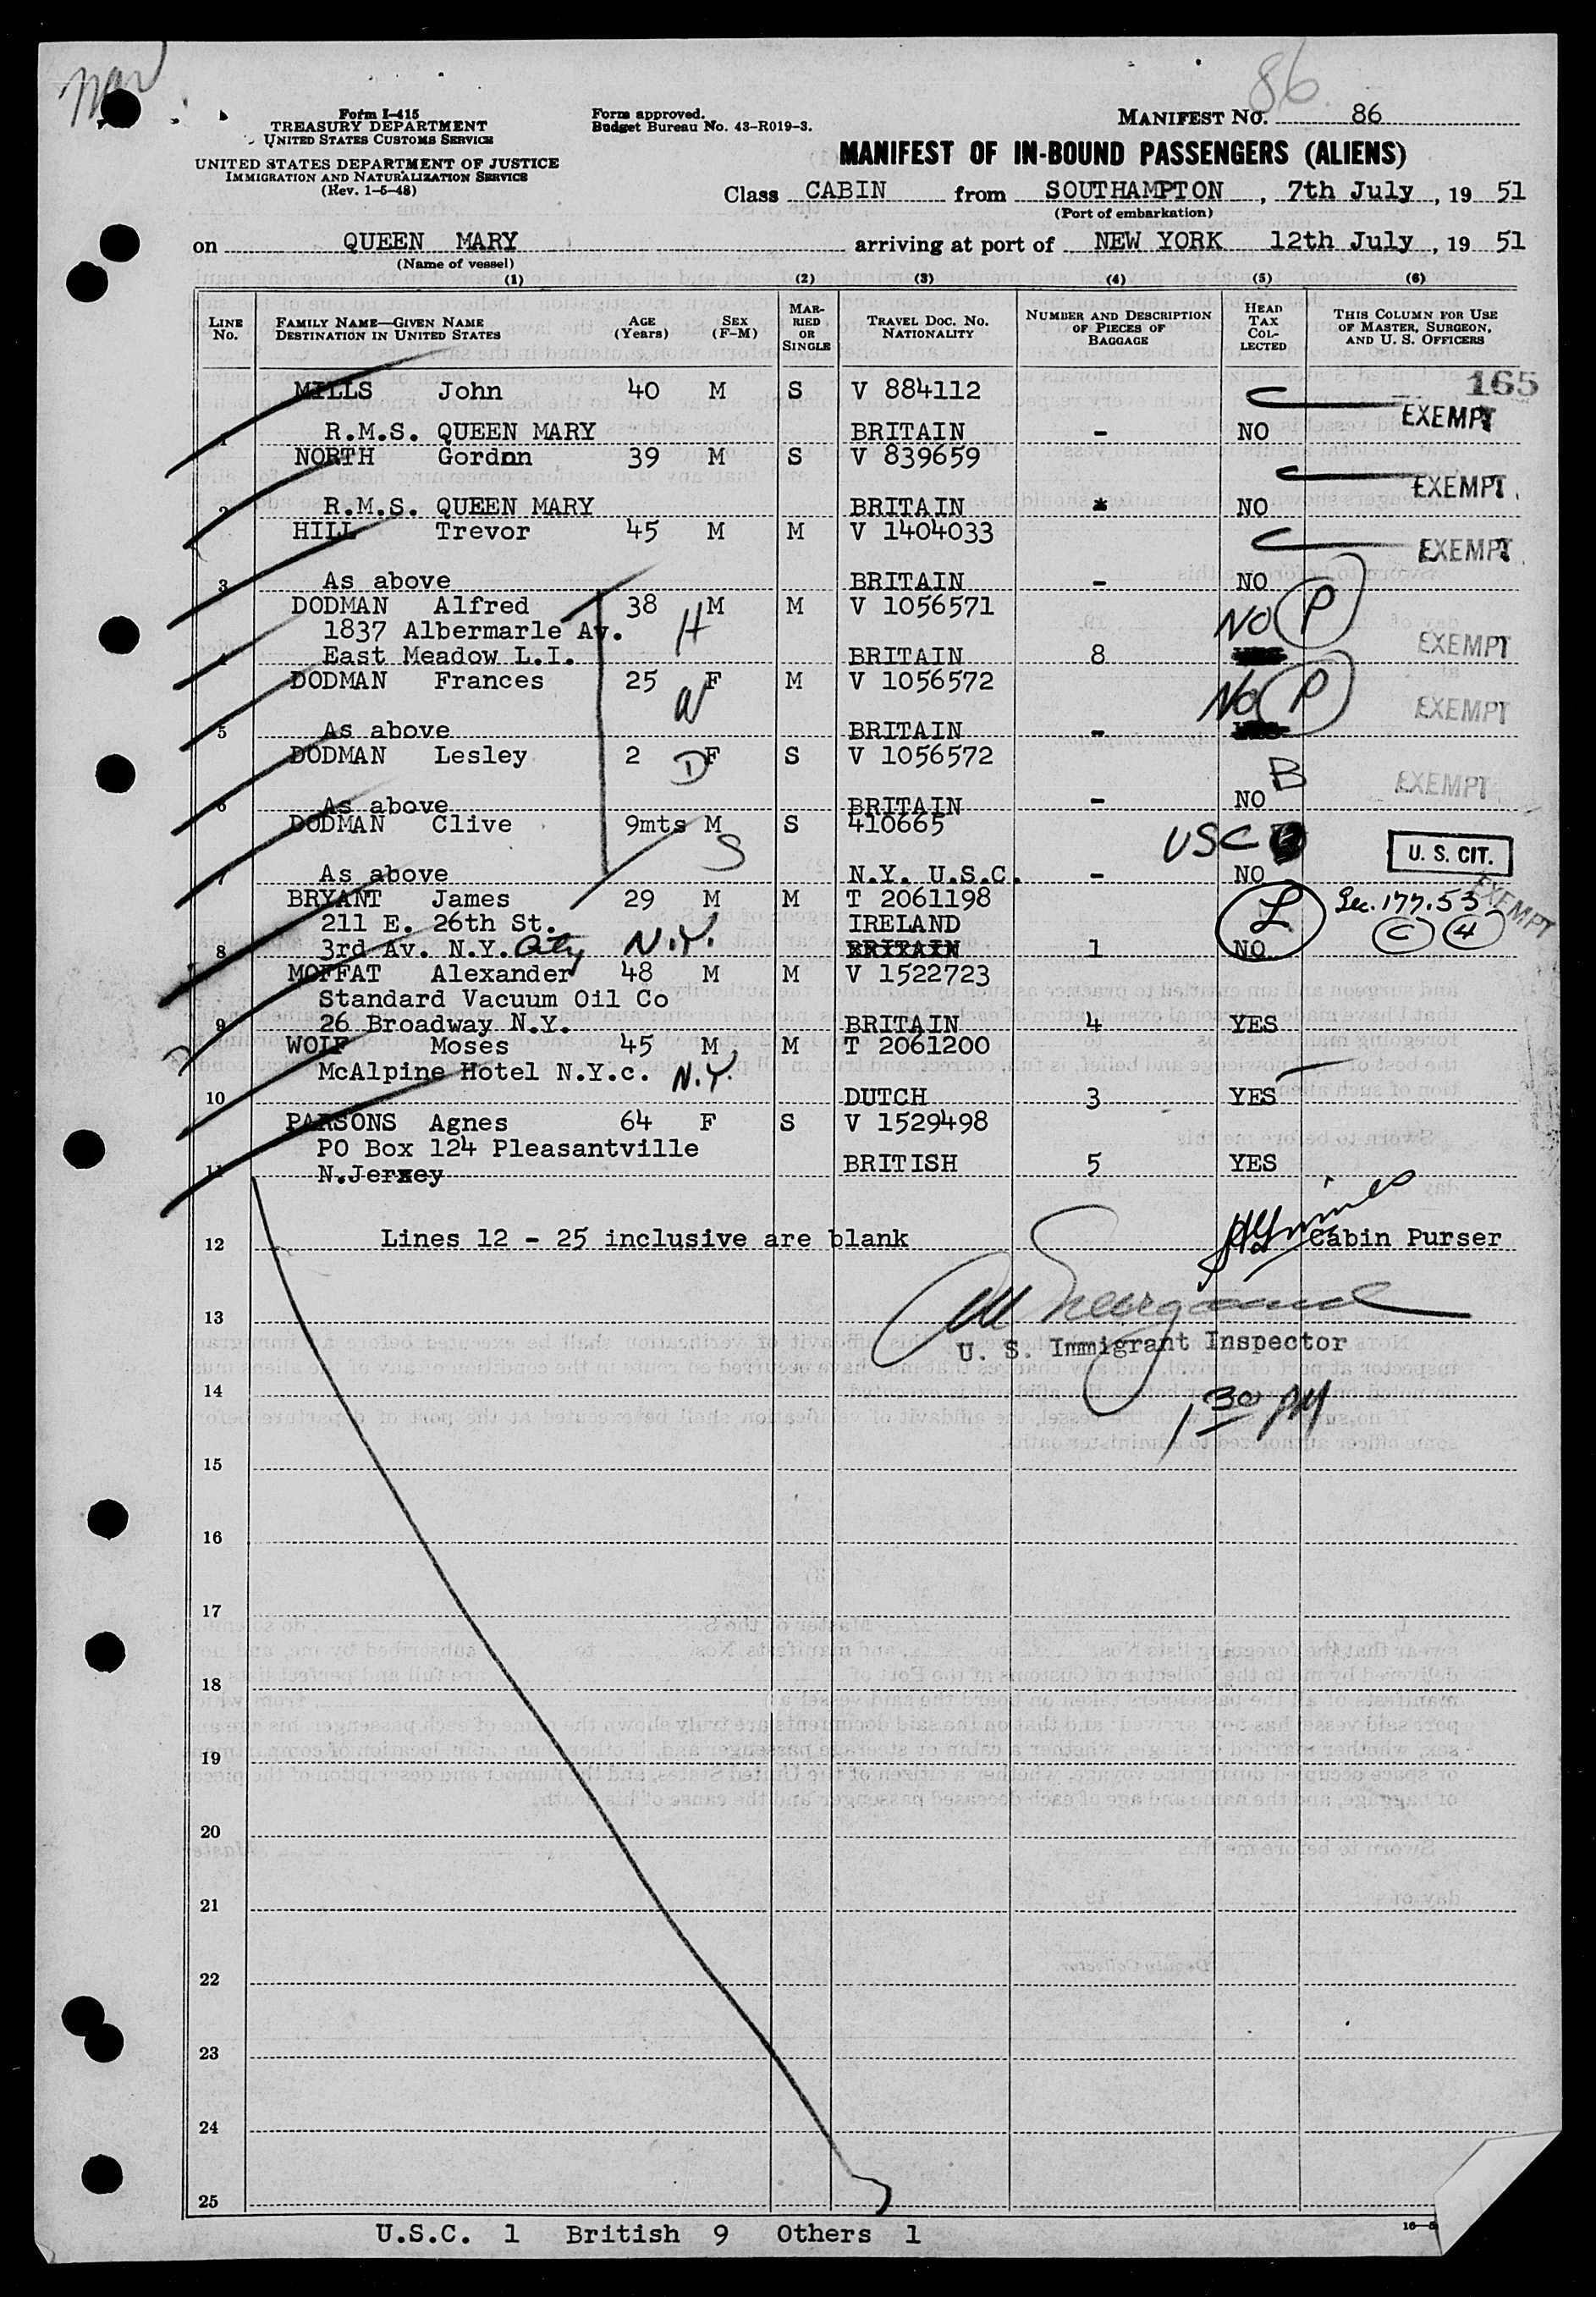 86
Form I-415
TREASURY DEPARTMENT
UNITED STATES CUSTOMS SERVICE
UNITED STATES DEPARTMENT OF JUSTICE
IMMIGRATION AND NATURALIZATION SERVICE
(Rev. 1-5-48)
Form approved.
Budget Bureau No. 43-R019-3.
MANIFEST NO. 86
MANIFEST OF IN-BOUND PASSENGERS (ALIENS)
Class CABIN from SOUTHAMPTON, 7th July, 19 51
(Port of embarkation)
on QUEEN MARY arriving at port of NEW YORK 12th July, 19 51
(Name of vessel)
(1) (2) (3) (4) (5) (6)
LINE No. FAMILY NAME—GIVEN NAME DESTINATION IN UNITED STATES AGE (Years) SEX (F-M) MARRIED OR SINGLE TRAVEL DOC. NO. NATIONALITY NUMBER AND DESCRIPTION OF PIECES OF BAGGAGE HEAD TAX COLLECTED THIS COLUMN FOR USE OF MASTER, SURGEON, AND U. S. OFFICERS
165
MILLS John 40 M S V 884112 EXEMPT
1 R.M.S. QUEEN MARY BRITAIN - NO
NORTH Gordon 39 M S V 839659 EXEMPT
2 R.M.S. QUEEN MARY BRITAIN * NO
HILL Trevor 45 M M V 1404033 EXEMPT
3 As above BRITAIN - NO
DODMAN Alfred 38 H M M V 1056571 NO P
1837 Albermarle Av.
4 East Meadow L.I. BRITAIN 8 EXEMPT
DODMAN Frances 25 W F M V 1056572 No P EXEMPT
5 As above BRITAIN -
DODMAN Lesley 2 D F S V 1056572 B EXEMPT
6 As above BRITAIN - NO
DODMAN Clive 9mts M S S 410665 USC U. S. CIT.
7 As above N.Y. U.S.C. - NO
BRYANT James 29 M M T 2061198 L Sec. 177.53 EXEMPT
211 E. 26th St. IRELAND C 4
8 3rd Av. N.Y. City N.Y. BRITAIN 1 NO
MOFFAT Alexander 48 M M V 1522723
Standard Vacuum Oil Co
9 26 Broadway N.Y. BRITAIN 4 YES
WOLF Moses 45 M M T 2061200
McAlpine Hotel N.Y.c. N.Y.
10 DUTCH 3 YES
PARSONS Agnes 64 F S V 1529498
PO Box 124 Pleasantville
11 N.Jersey BRITISH 5 YES
12 Lines 12 - 25 inclusive are blank Cabin Purser
13
U. S. Immigrant Inspector
14
1 30 PM
15
16
17
18
19
20
21
22
23
24
25
U.S.C. 1 British 9 Others 1